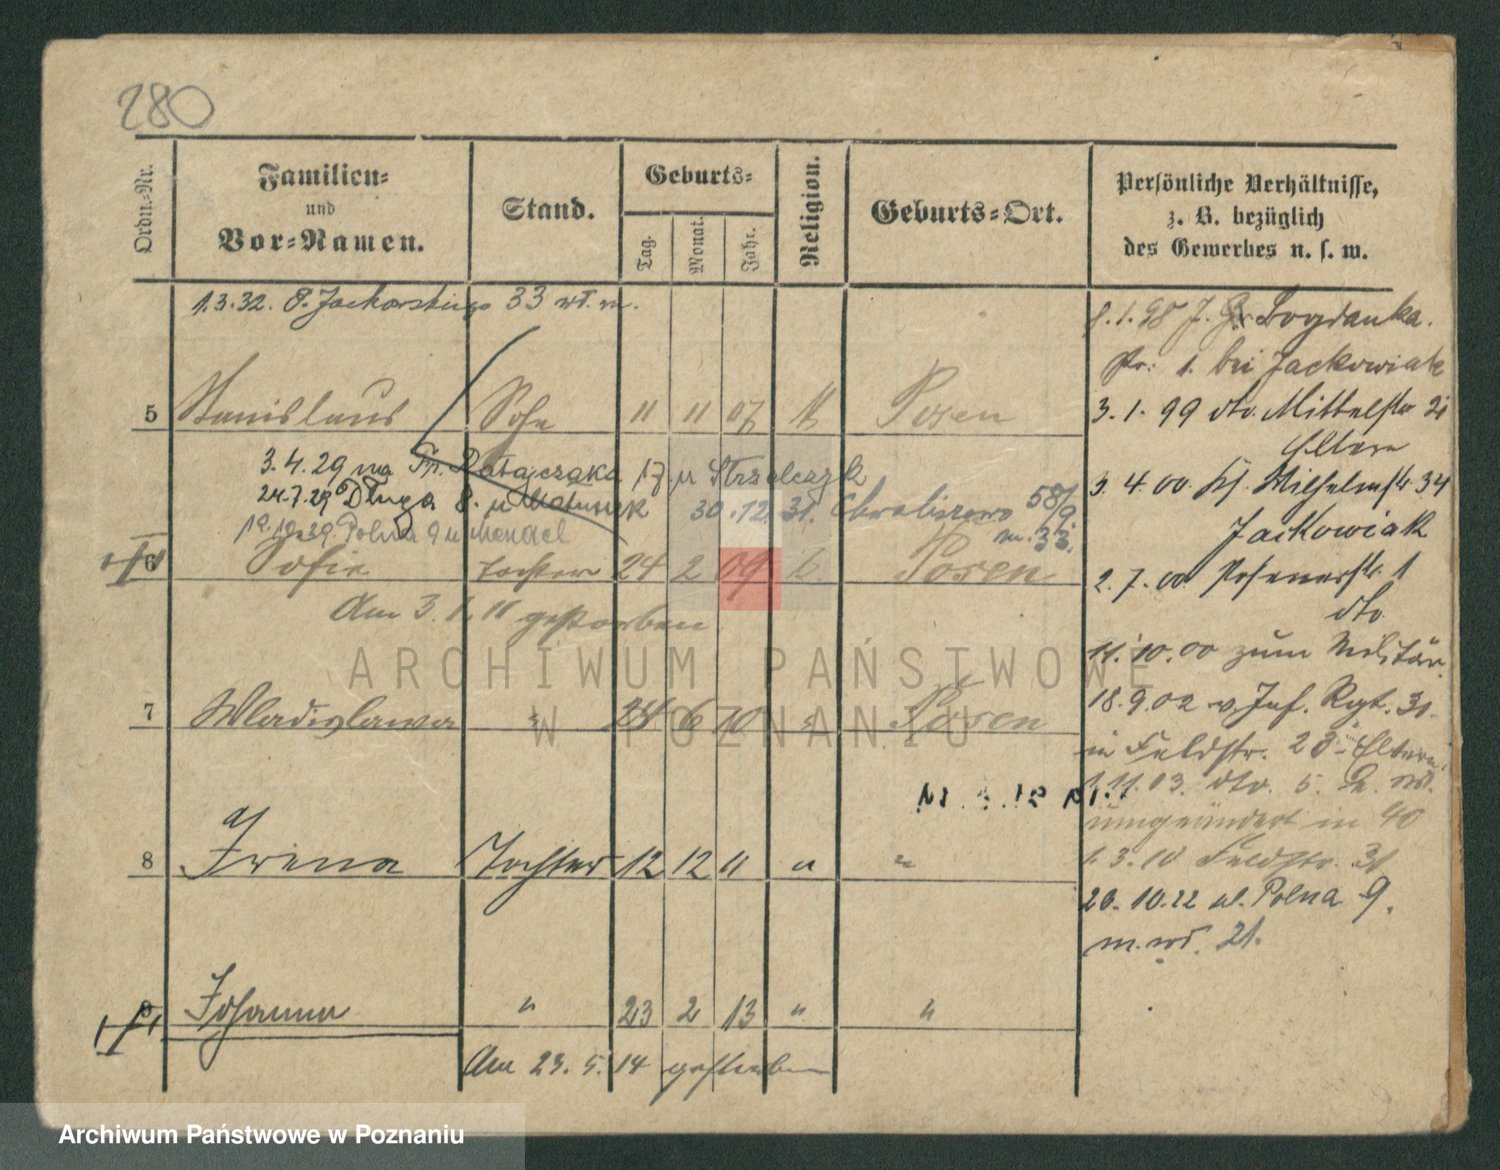 280
Ordn.-Nr.
Familien-
und
Vor-Namen.
Stand.
Geburts-
Tag.
Monat.
Jahr.
Religion.
Geburts-Ort.
Persönliche Verhältnisse,
z. B. bezüglich
des Gewerbes u. s. w.
1.3.32. 33 m.
5 Stanislaus Sohn 11 11 07 k Posen
3.4.29 na Fr. Ratajczaka 17 u Strzelczyk
24.7.29 Długa 8. u Matuszak 30.12.31. 58/9.
Polna 9 u m. 33.
6 Sofie Tochter 24 2 09 k Posen
Am 3.1.11 gestorben
7 Wladyslawa " 24 6 10 " Posen
8 Irena Tochter 12 12 11 " "
9 Johanna " 23 2 13 " "
Am 23.5.14 gestorben
8.1.98 J. Gr Bogdanka.
Nr: 1. bei Jackowiak
3.1.99 dto. Mittelstr 2
Eltern
3.4.00. Wilhelmstr. 34
Jackowiak
2.7.00 Posenerstr. 1
dto
11.10.00 zum Militär
18.9.02 v. Inf. Rgt. 31.
in Feldstr. 28 Eltern.
1.11.03. dto. 5.
umgeändert in 40
1.3.10 Feldstr. 31
20.10.22 ul. Polna 9.
m. 21.
ARCHIWUM PAŃSTWOWE
W POZNANIU
Archiwum Państwowe w Poznaniu